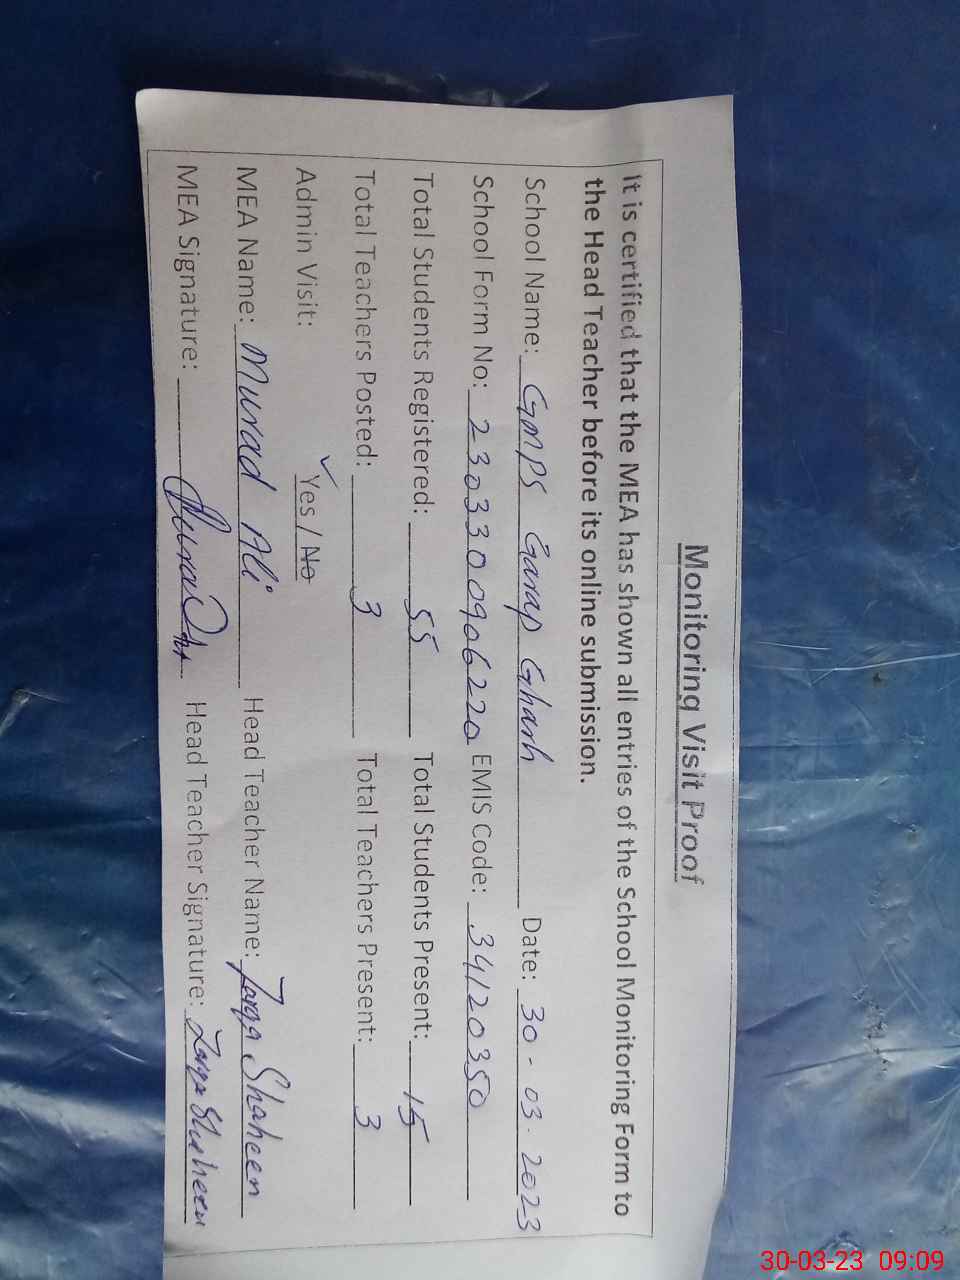 Monitoring Visit Proof
It is certified that the MEA has shown all entries of the School Monitoring Form to
the Head Teacher before its online submission.
School Name: GMPS Garap Gharh Date: 30-03-2023
School Form No: 2303300906220 EMIS Code: 34120350
Total Students Registered: 55 Total Students Present: 15
Total Teachers Posted: 3 Total Teachers Present: 3
Admin Visit: ✓Yes / No
MEA Name: Murad Ali Head Teacher Name: Zarqa Shaheen
MEA Signature: Head Teacher Signature: Zarqa Shaheen
30-03-23 09:09